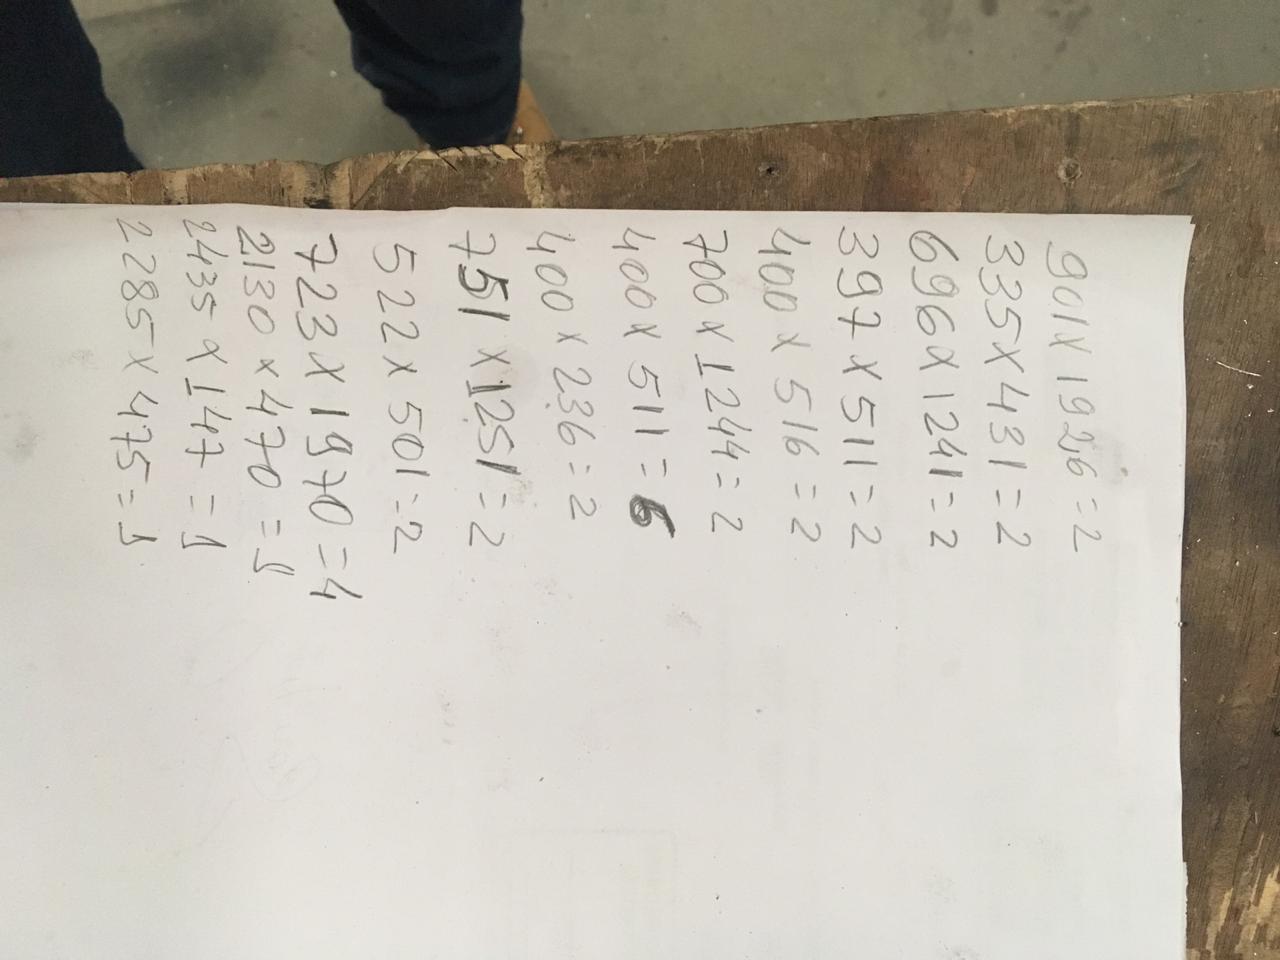 901x1926=2
335x431=2
696x1241=2
397x511=2
400x516=2
700x1244=2
400x511=6
400x236=2
751x1251=2
522x501=2
723x1970=4
2130x470=1
2435x147=1
2285x475=1